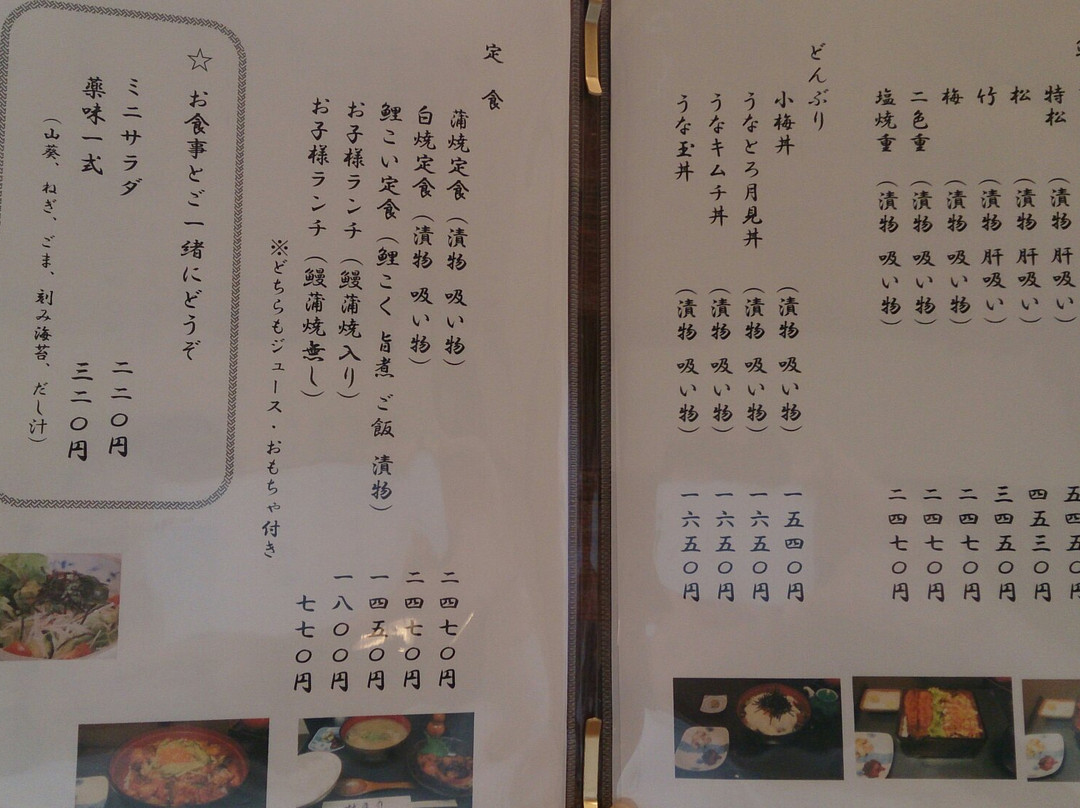 特松（漬物 肝吸い
松（漬物 肝吸い） 四五三〇円
竹（漬物 肝吸い） 三四五〇円
梅（漬物 吸い物） 二四七〇円
二色重（漬物 吸い物） 二四七〇円
塩焼重（漬物 吸い物） 二四七〇円
どんぶり
小梅丼（漬物 吸い物） 一五四〇円
うなとろ月見丼（漬物 吸い物） 一六五〇円
うなキムチ丼（漬物 吸い物） 一六五〇円
うな玉丼（漬物 吸い物） 一六五〇円
定食
蒲焼定食（漬物 吸い物） 二四七〇円
白焼定食（漬物 吸い物） 二四七〇円
鯉こい定食（鯉こく 旨煮 ご飯 漬物） 一四五〇円
お子様ランチ（鰻蒲焼入り） 一八〇〇円
お子様ランチ（鰻蒲焼無し） 七七〇円
※どちらもジュース・おもちゃ付き
☆ お食事とご一緒にどうぞ
ミニサラダ 二二〇円
薬味一式 三二〇円
（山葵、ねぎ、ごま、刻み海苔、だし汁）